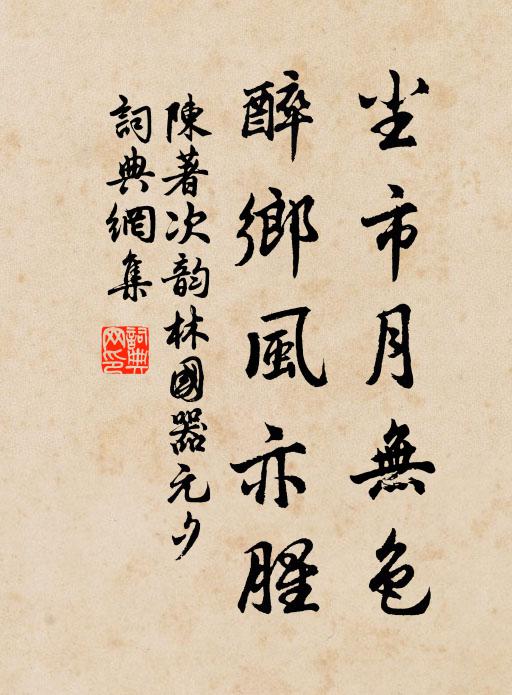 尘市月無色
醉鄉風亦腥
陳著次韵林國器元夕
詞典網集
詞典网印